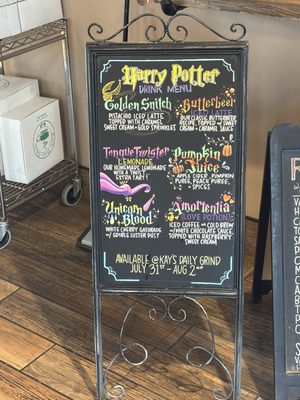 Harry Potter
DRINK MENU
Golden Snitch
PISTACHIO ICED LATTE
TOPPED WITH CARAMEL
SWEET CREAM + GOLD SPRINKLES
Butterbeer
OUR CLASSIC BUTTERBEER
RECIPE TOPPED W/ SWEET
CREAM + CARAMEL SAUCE
Tongue Twister
LEMONADE
OUR HOMEMADE LEMONADE
WITH A TWIST...
EXTRA TART!
Pumpkin
Juice
APPLE CIDER, PUMPKIN
PUREE, PEACH PUREE,
+ SPICES
Unicorn
Blood
WHITE CHERRY GATORADE
W/ EDIBLE LUSTER DUST
Amortentia
(LOVE POTION)
ICED COFFEE OR COLD BREW
W/ WHITE CHOCOLATE SAUCE
TOPPED WITH RASPBERRY
SWEET CREAM
AVAILABLE @KAY'S DAILY GRIND
JULY 31ST - AUG 2ND